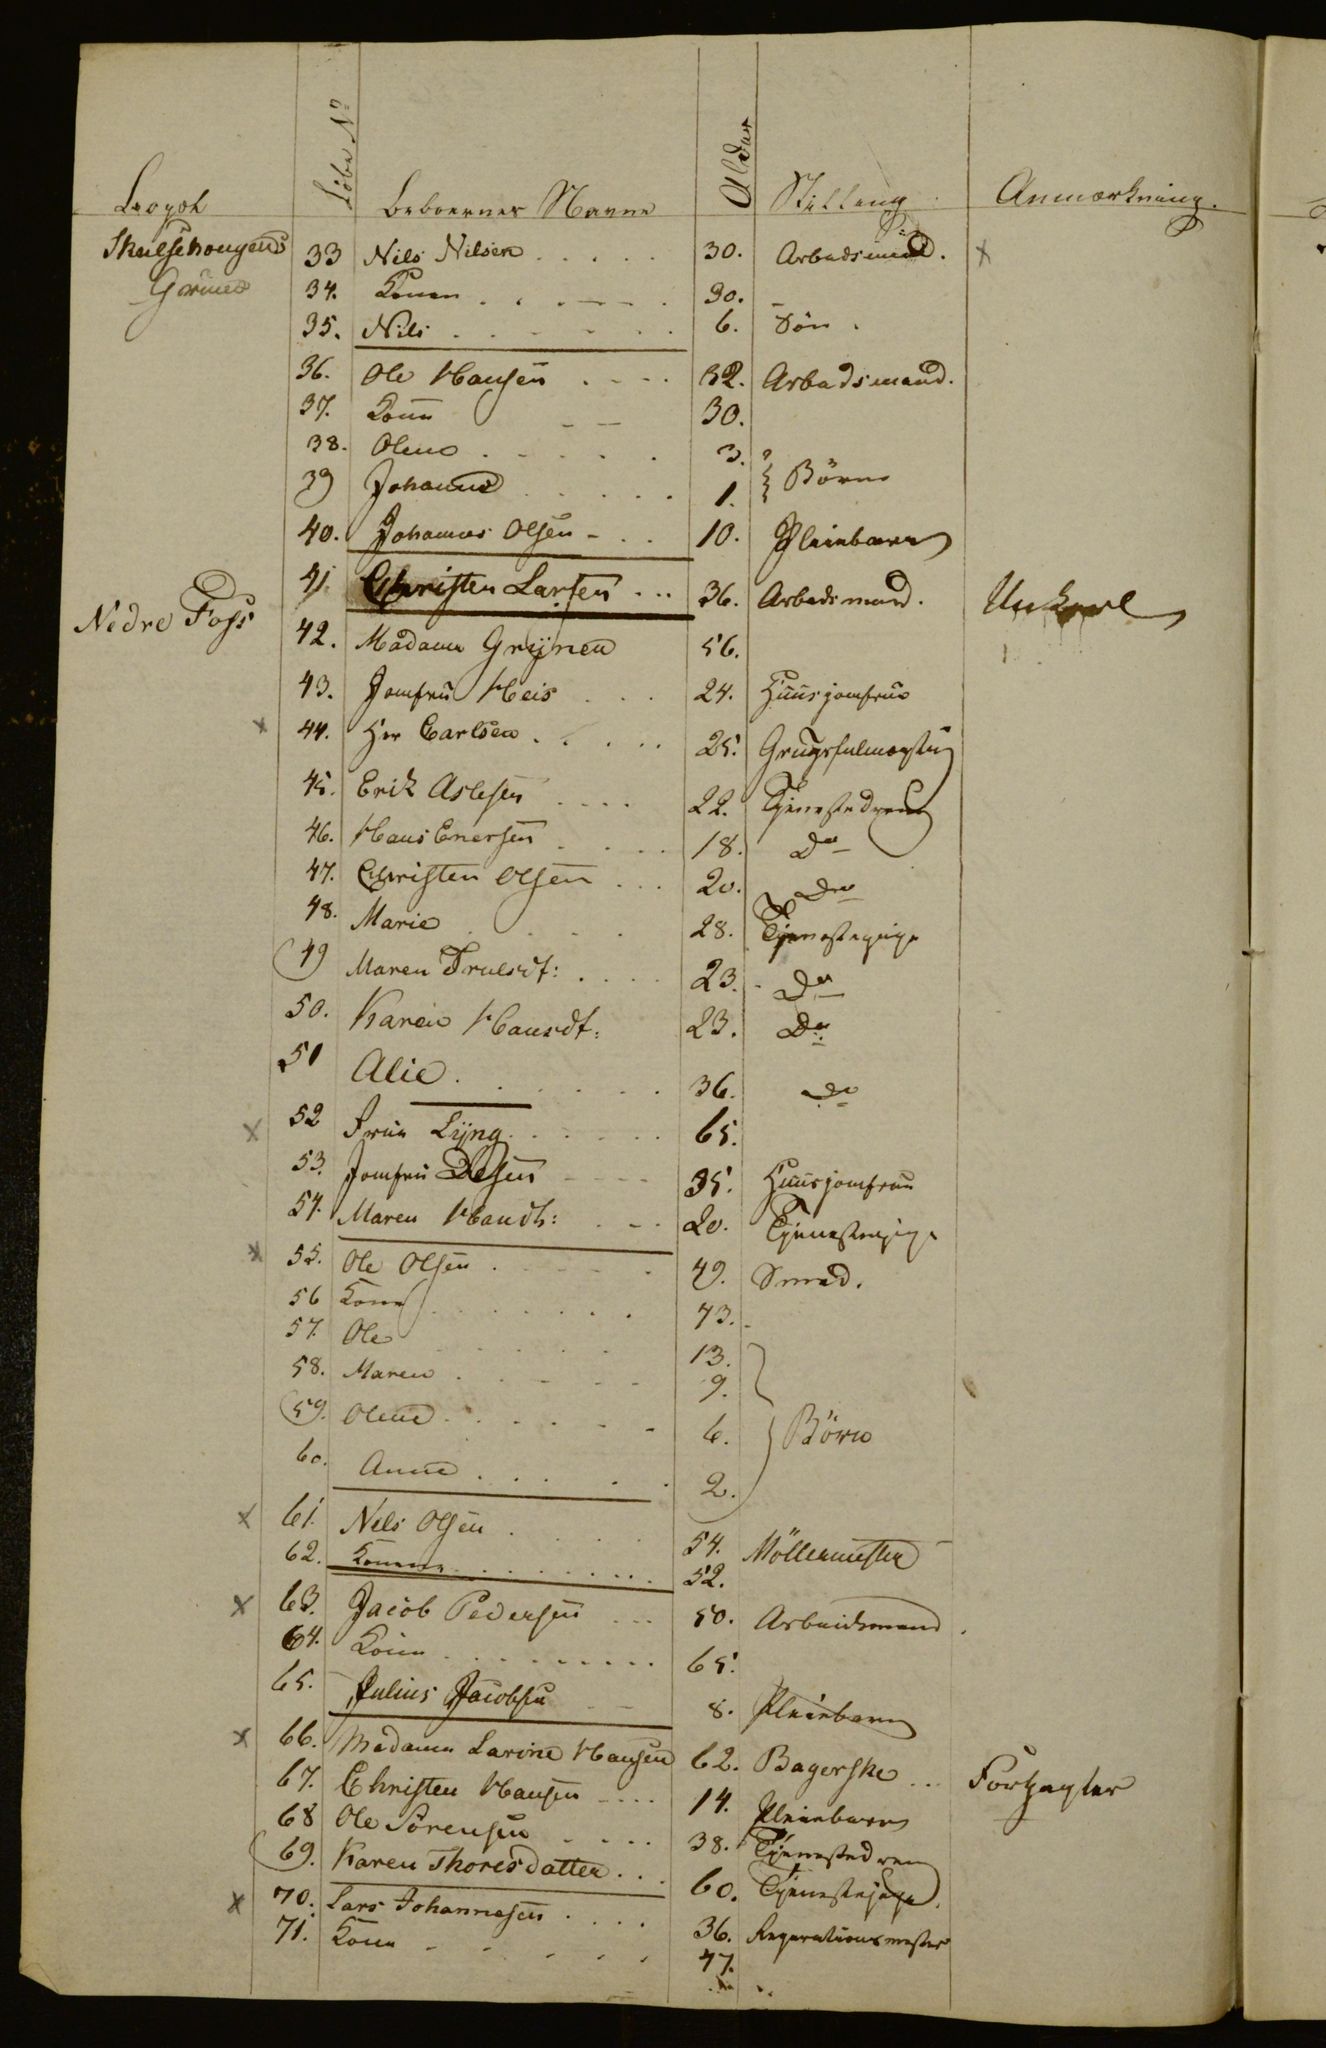 Løbe No
Alder
Beboernes Navne Stilling Anmærkning.
33 Nils Nilsen 30. Arbeidsmand. x
34. Konen 30.
35. Nils 6. Søn.
36. Ole Hansen 32. Arbeidsmand.
37. Kone 30.
38. Oline 3.
39 Johanne 1. Børn
40. Johannes Olsen 10. Pleiebarn
41 Christen Larsen 36. Arbeidsmand. Unkarl
Nedre Foss
42. Madame Grünen 56.
43. Jomfru Heis 24. Huusjomfrue
x 44. Hr Carlsen 25.
45. Erik Aslesen 22. Tjenestedreng
46. Hans Enersen 18. Do
47. Christen Olsen 20. Do
48. Marie 28. Tjenestepige
49 Maren Trulsdt: 23. Do
50. Karen Hansdt: 23. Do
51 Alie 36. Do
x 52 Frue Lÿng 65.
53. Jomfru Olsen 35. Huusjomfrue
54. Maren Hansdt: 20. Tjenestepige
x 55. Ole Olsen 49. Smed.
56 Kone 43.
57. Ole 13.
58. Maren 9.
59. Oline 6. Børn
60. Anne 2.
x 61. Nils Olsen 54. Møllermester
62. Konen 52.
x 63. Jacob Pedersen 50. Arbeidsmand.
64. Kone 65.
65. Julius Jacobsen 8. Pleiebarn
x 66. Madame Larine Hansen 62. Bagerske Forpagter
67. Christen Hansen 14. Pleiebarn
68 Ole Sørensen 38. Tjenestedreng
69. Karen Thoresdatter 60. Tjenestepige.
x 70. Lars Johannesen 36. Reparationsmester
71. Kone 47.